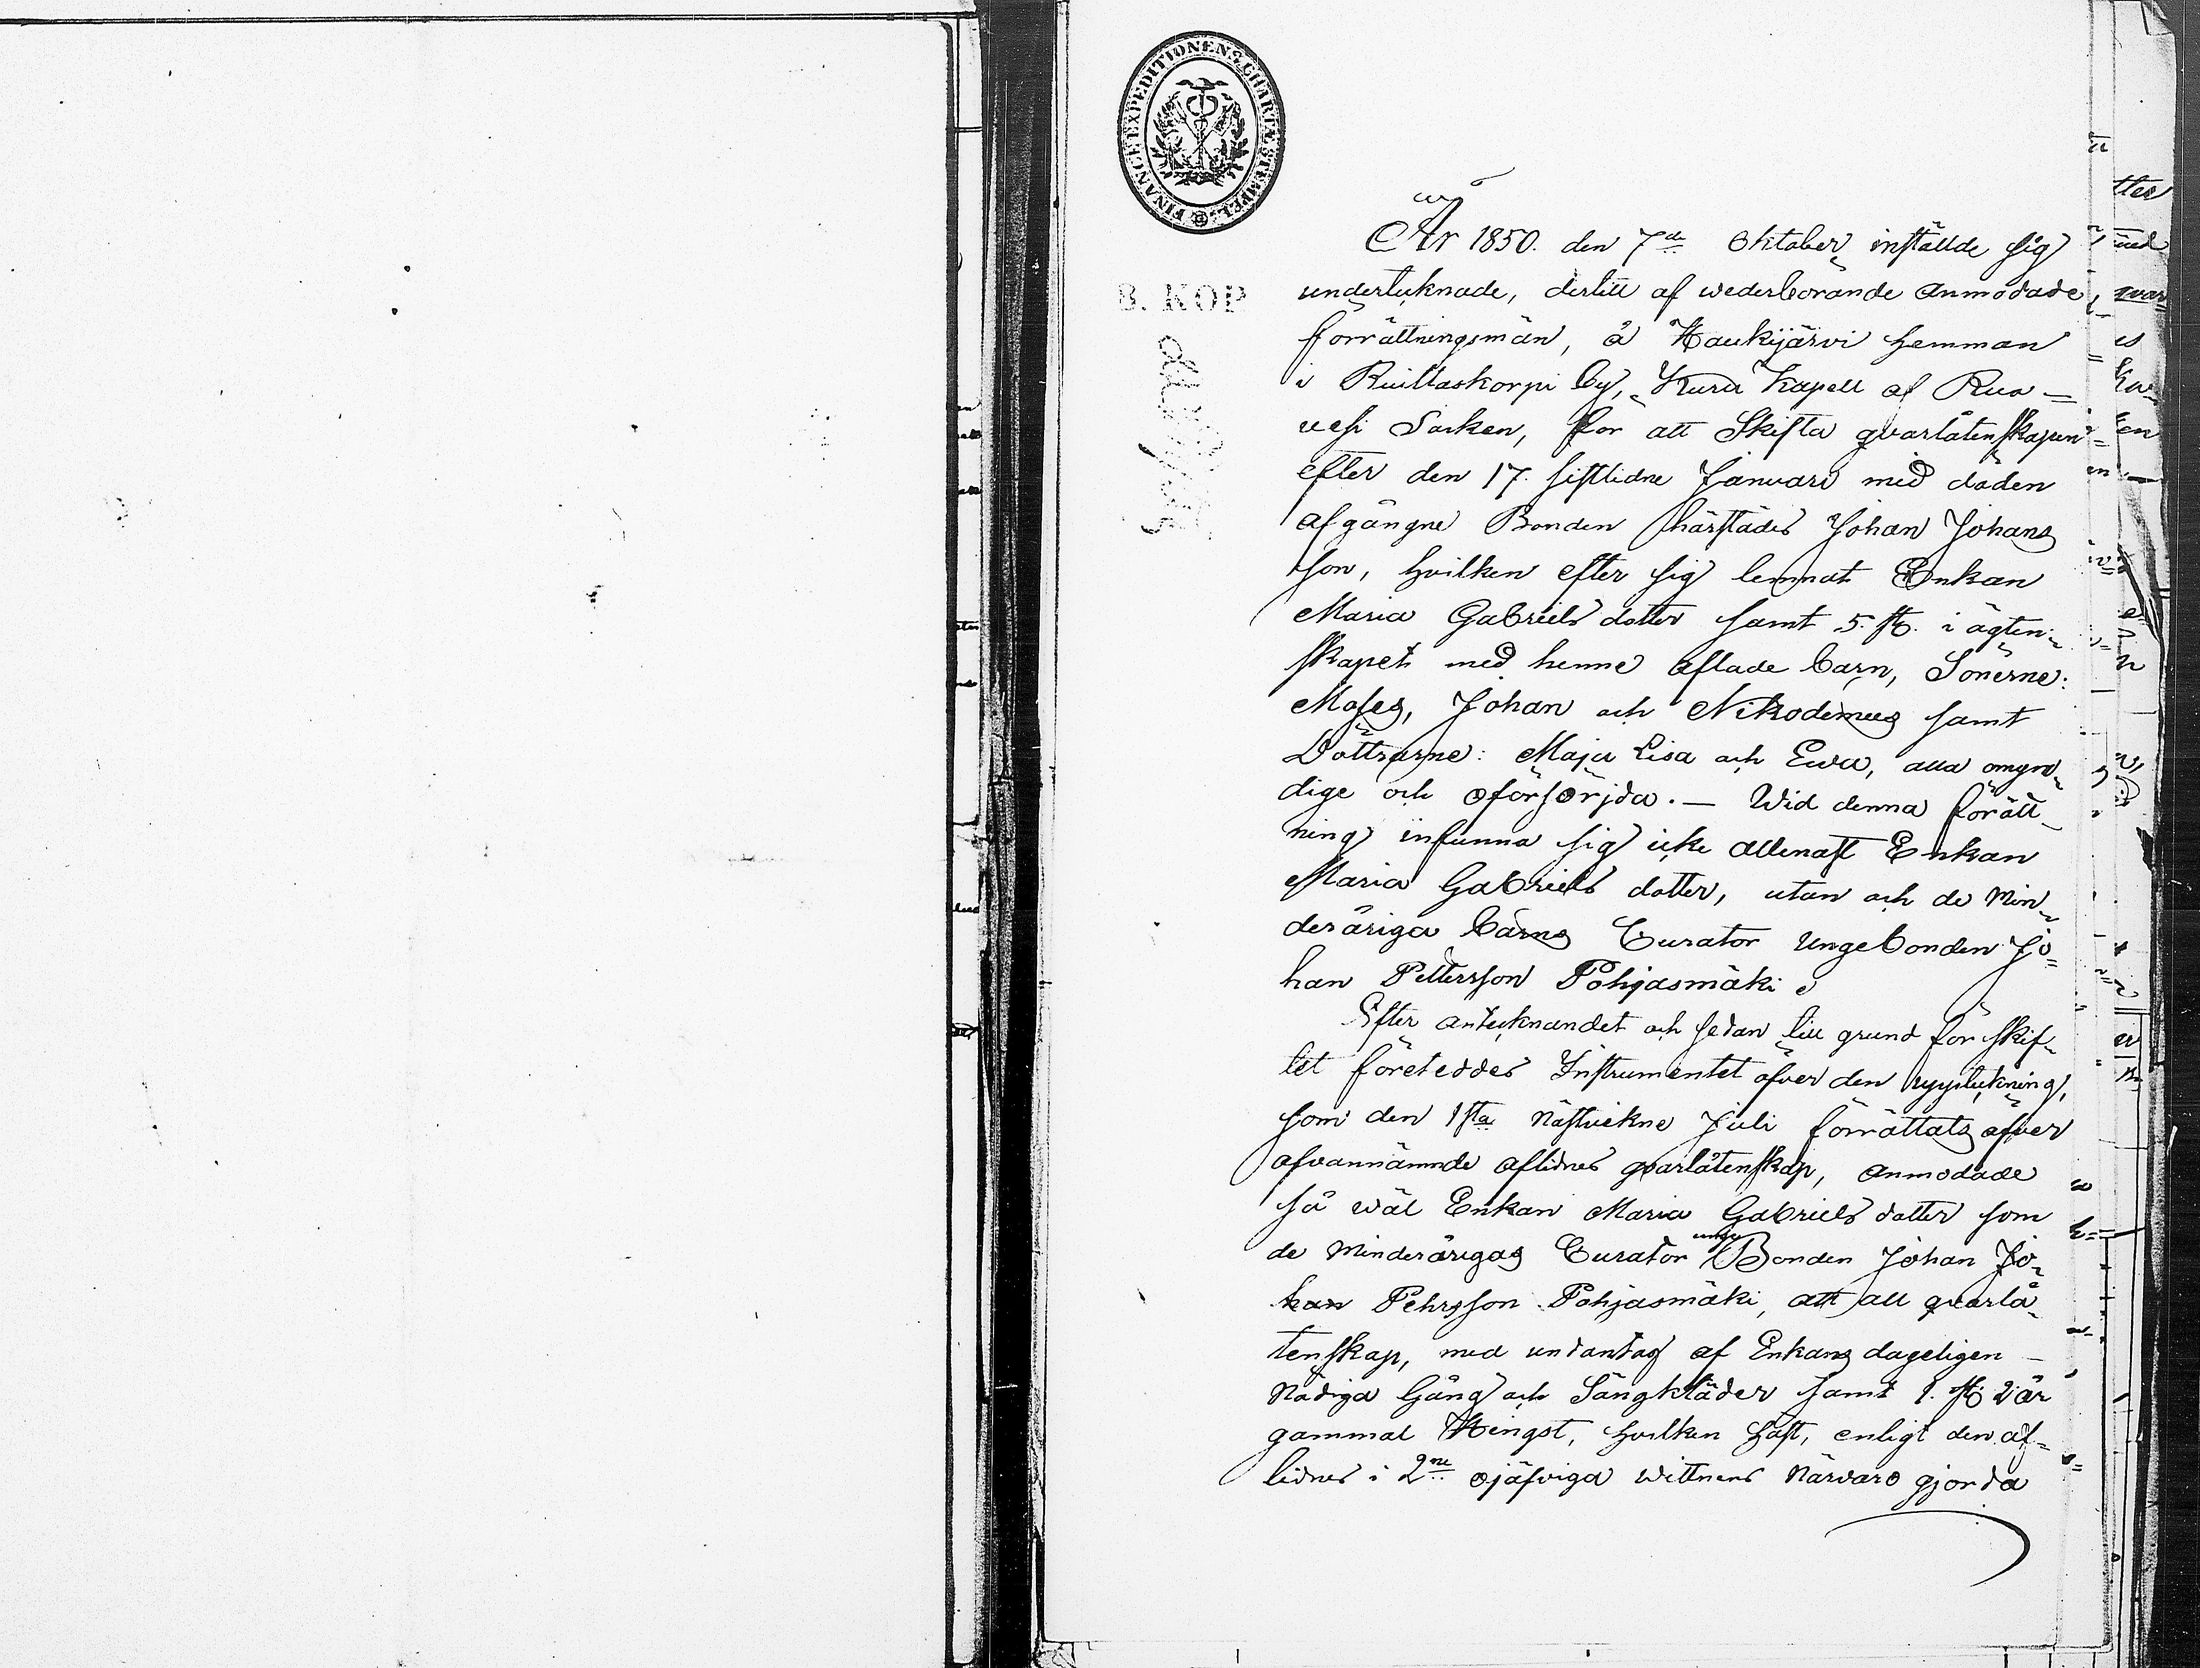 FINANCE EXPEDITIONENS CHARTÆ STEMPEL
B. KOP
År 1850. den 7de Oktober inställde sig
undertecknade, dertill af wederbörande anmodade
förrättningsmän, å Haukijärvi hemman
i Ruittaskorpi by, Kuru Kapell af Ruo-
vesi Socken, för att Skifta qvarlåtenskapen
efter den 17. sistlidne Januari med döden
afgångne Bonden härstädes Johan Johans
son, hvilken efter sig lemnat Enkan
Maria Gabriels dotter samt 5. st. i ägten-
skapet med henne aflade barn, Sönerne:
Moses, Johan och Nikodemus samt
Döttrarne: Maja Lisa och Ewa, alla omyn-
dige och oförsörjda. - Wid denna förätt-
ning infunno sig icke allenast Enkan
Maria Gabriels dotter, utan och de Min-
deråriga barns Curator Ungebonden Jo=
han Pettersson Pohjasmäki
Efter antecknandet och sedan till grund för skif-
tet företeddes Instrumentet öfver den uppteckning,
som den 1sta Nästvekne Juli förrättats öfver
ofvannämnde aflidnes qvarlåtenskap, anmodade
så wäl Enkan Maria Gabriels dotter som
de Minderårigas Curator unge Bonden Johan Jo-
han Pehrsson Pohjasmäki, att all qvarlå-
tenskap, med undantag af Enkans dageligen -
Nödiga Gång och Sängkläder samt 1. st. 2 år
gammal Hingst, hvilken häst, enligt den af-
lidnes i 2ne ojäfviga wittnens Närvaro gjorda